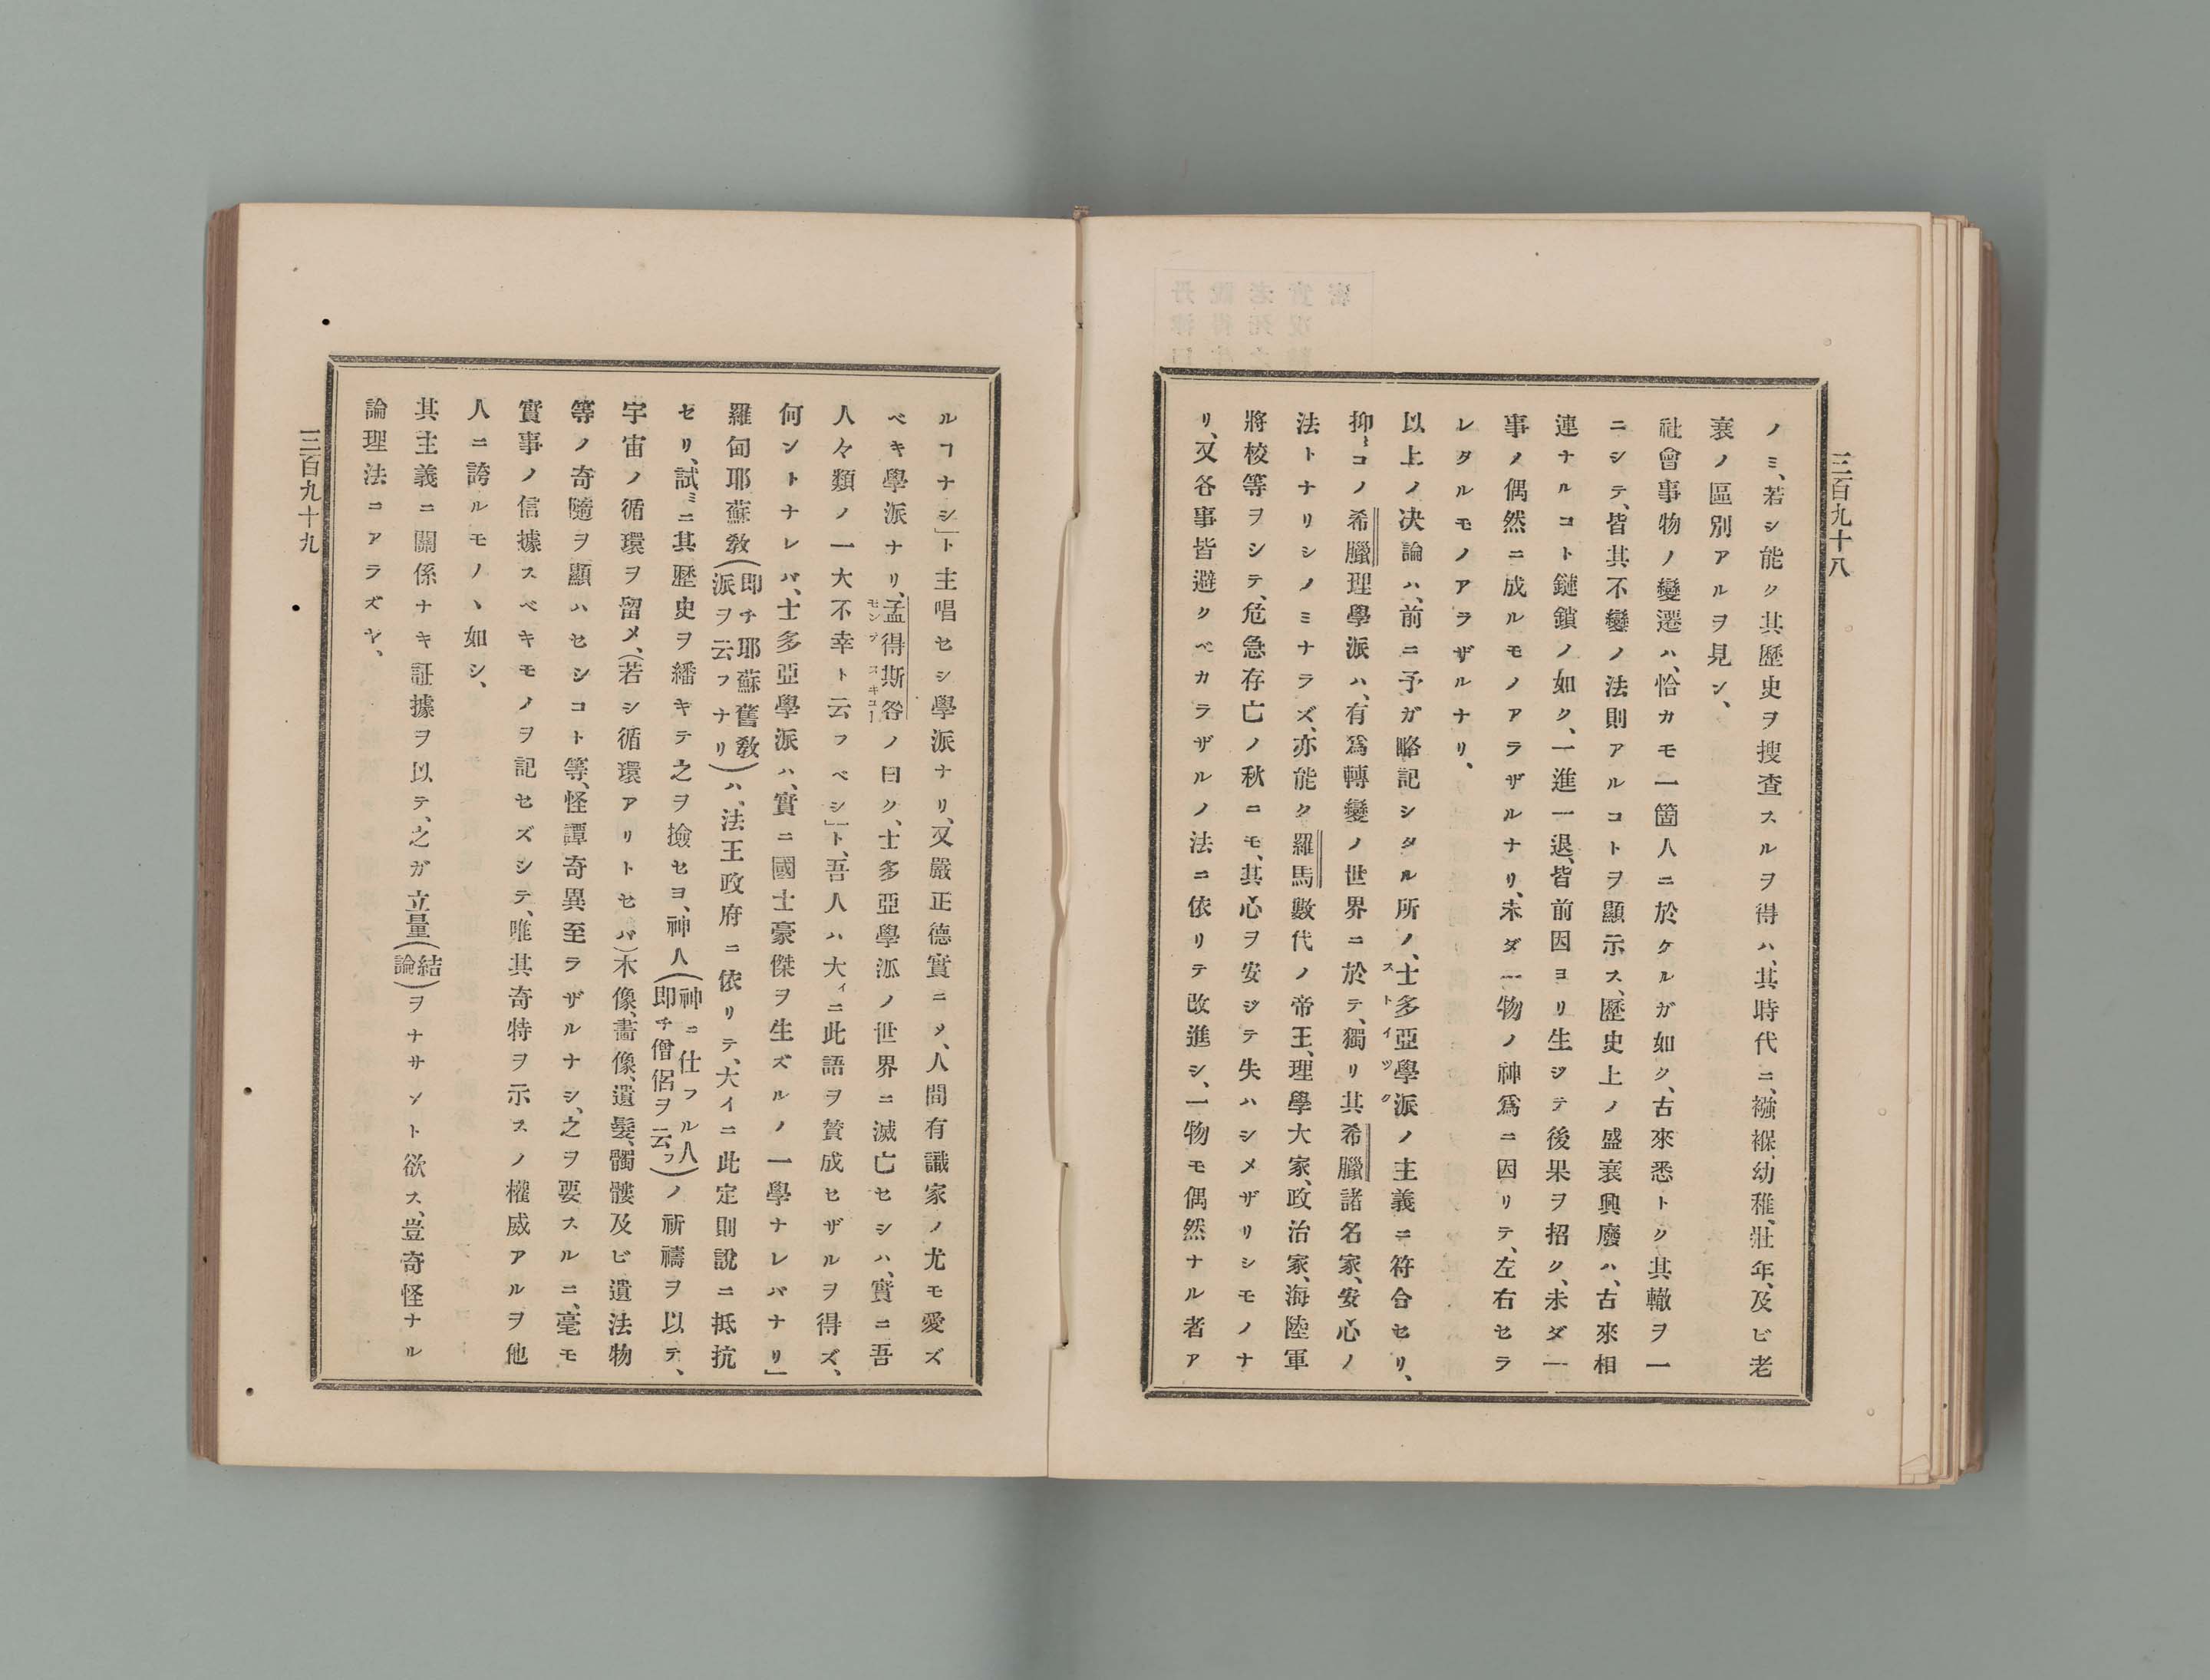 三百九十八
ノミ、若シ能ク其歷史ヲ搜査スルヲ得ハ、其時代ニ、襁褓、幼稚、壯年、及ビ老
衰ノ區別アルヲ見ン、
社會事物ノ變遷ハ、恰カモ一箇人ニ於ケルガ如ク、古來悉トク其轍ヲ一
ニシテ、皆其不變ノ法則アルコトヲ顯示ス、歷史上ノ盛衰興廢ハ、古來相
連ナルコト鏈鎖ノ如ク、一進一退、皆前因ヨリ生ジテ後果ヲ招ク、未ダ一
事ノ偶然ニ成ルモノアラザルナリ、未ダ一物ノ神爲ニ因リテ、左右セラ
レタルモノアラザルナリ、
以上ノ決論ハ、前ニ予ガ略記シタル所ノ、士多亞學派ノ主義ニ符合セリ、
ストイツク
抑〻コノ希臘理學派ハ、有爲轉變ノ世界ニ於テ、獨リ其希臘諸名家、安心ノ
法トナリシノミナラズ、亦能ク羅馬數代ノ帝王、理學大家、政治家、海陸軍
將校等ヲシテ、危急存亡ノ秋ニモ、其心ヲ安ジテ失ハシメザリシモノナ
リ、又各事皆避クベカラザルノ法ニ依リテ改進シ、一物モ偶然ナル者ア
ルコナシ」ト主唱セシ學派ナリ、又嚴正德實ニメ、人間有識家ノ尤モ愛ズ
ベキ學派ナリ、孟得斯咎ノ曰ク、士多亞學派ノ世界ニ滅亡セシハ、實ニ吾
モンテスキユー
人々類ノ一大不幸ト云フベシ」ト、吾人ハ大イニ此語ヲ贊成セザルヲ得ズ、
何ントナレバ、士多亞學派ハ、實ニ國士豪傑ヲ生ズルノ一學ナレバナリ」
羅甸耶蘇敎(即チ耶蘇舊敎派ヲ云フナリ)ハ、法王政府ニ依リテ、大イニ此定則說ニ抵抗
セリ、試ミニ其歷史ヲ繙キテ之ヲ撿セヨ、神人(神ニ仕フル人即チ僧侶ヲ云フ)ノ祈禱ヲ以テ、
宇宙ノ循環ヲ留メ、(若シ循環アリトセバ)木像、畵像、遺髮、髑髏及ビ遺法物
等ノ奇隨ヲ顯ハセシコト等、怪譚奇異至ラザルナシ、之ヲ要スルニ、毫モ
實事ノ信據スベキモノヲ記セズシテ、唯其奇特ヲ示スノ權威アルヲ他
人ニ誇ルモノヽ如シ、
其主義ニ關係ナキ証據ヲ以テ、之ガ立量(結論)ヲナサント欲ス、豈奇怪ナル
論理法ニアラズヤ、
三百九十九